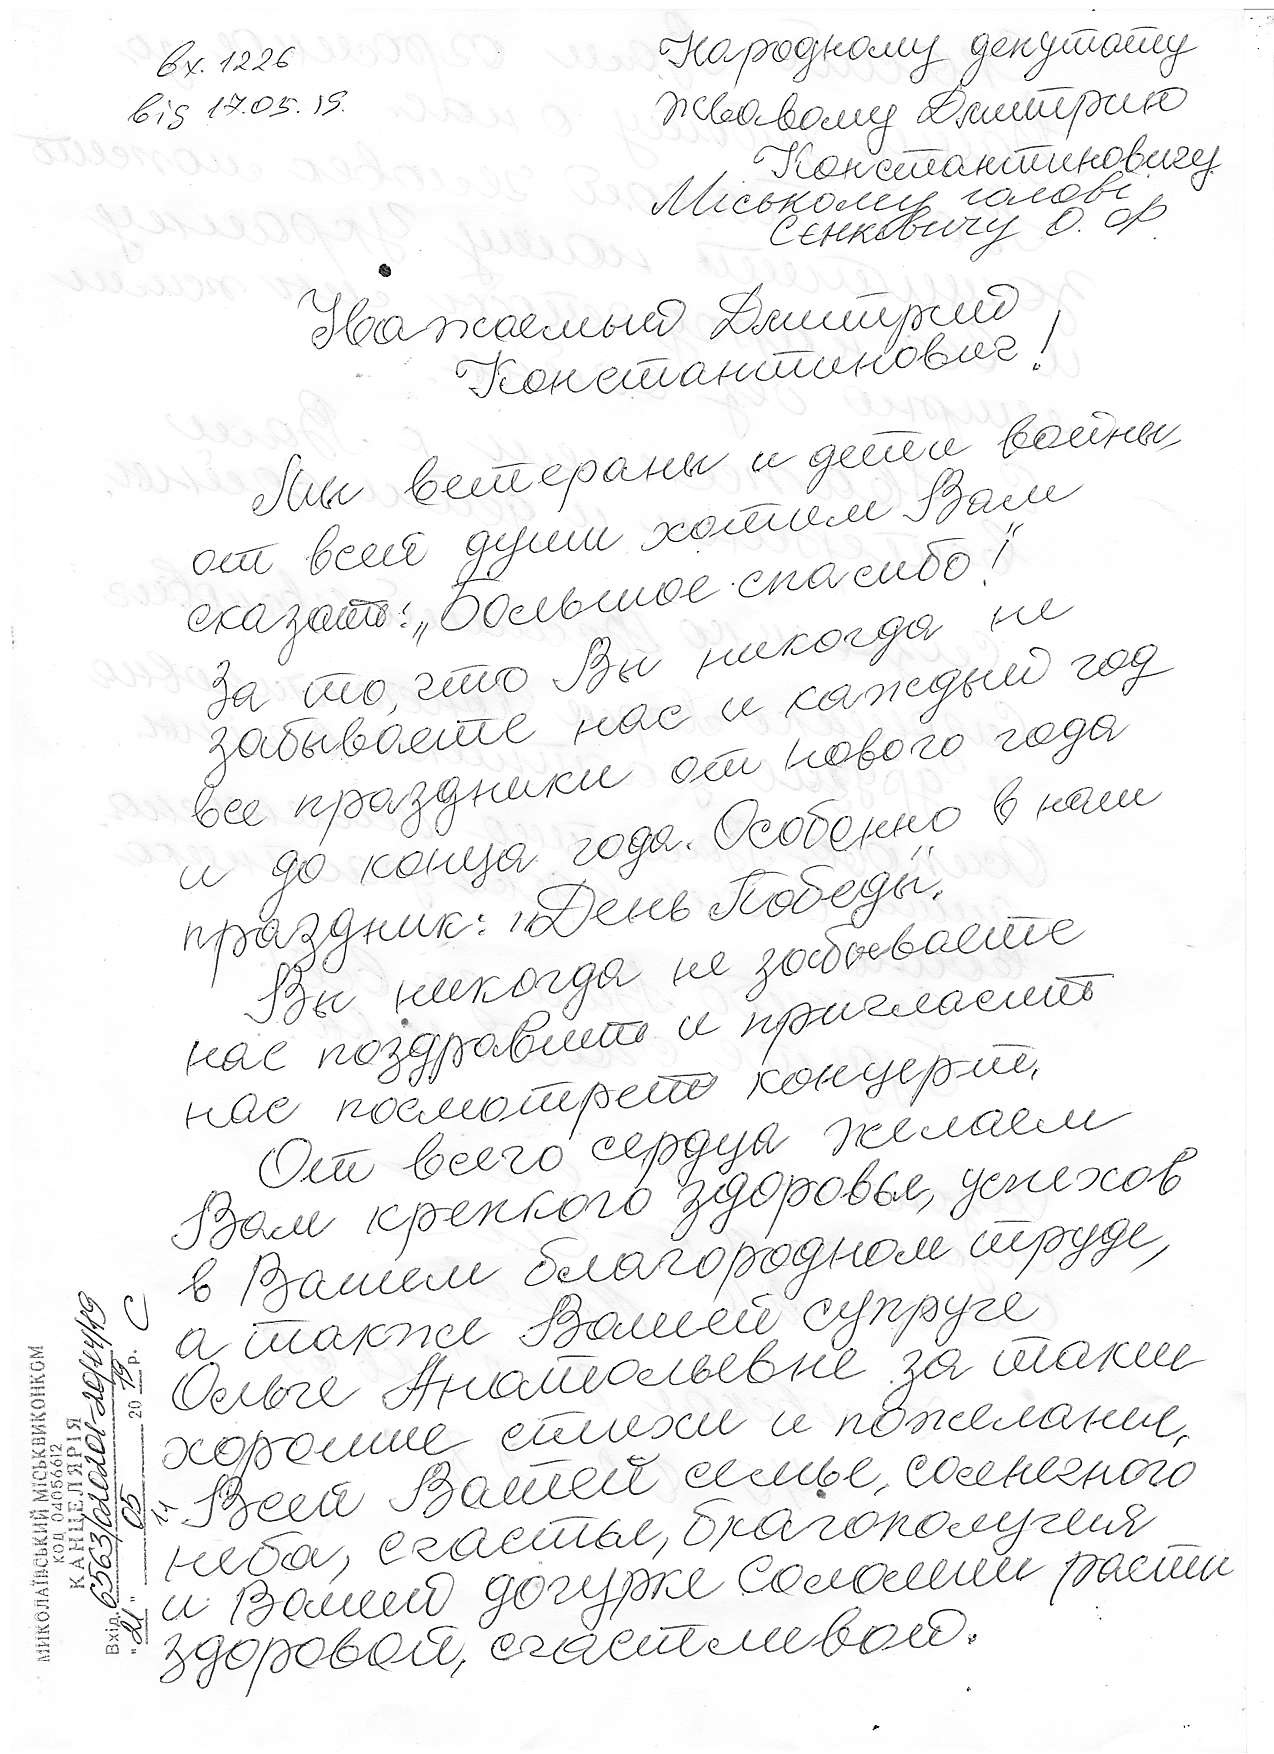 вх. 1226
від 17.05.19.
Народному депутату
Жвавому Дмитрию
Константиновичу
Міському голові
Сєнкевичу О. Ф.
Уважаемый Дмитрий
Константинович!
Мы ветераны и дети войны,
от всей души хотим Вам
сказать: „Большое спасибо!"
За то, что Вы никогда не
забываете нас и каждый год
все праздники от нового года
и до конца года. Особенно в наш
праздник: „День Победы".
Вы никогда не забываете
нас поздравить и пригласить
нас посмотреть концерт.
От всего сердца желаем
Вам крепкого здоровья, успехов
в Вашем благородном труде,
а также Вашей супруге
Ольге Анатольевне за такие
хорошие стихи и пожелания,
Всей Вашей семье, солнечного
неба, счастья, благополучия
и Вашей дочурке Соломии расти
здоровой, счастливой.
МИКОЛАЇВСЬКИЙ МІСЬКВИКОНКОМ
КОД 04056612
КАНЦЕЛЯРІЯ
Вхід. 6563/020201-20/14/19
"21" 05 2019 р.
С
14